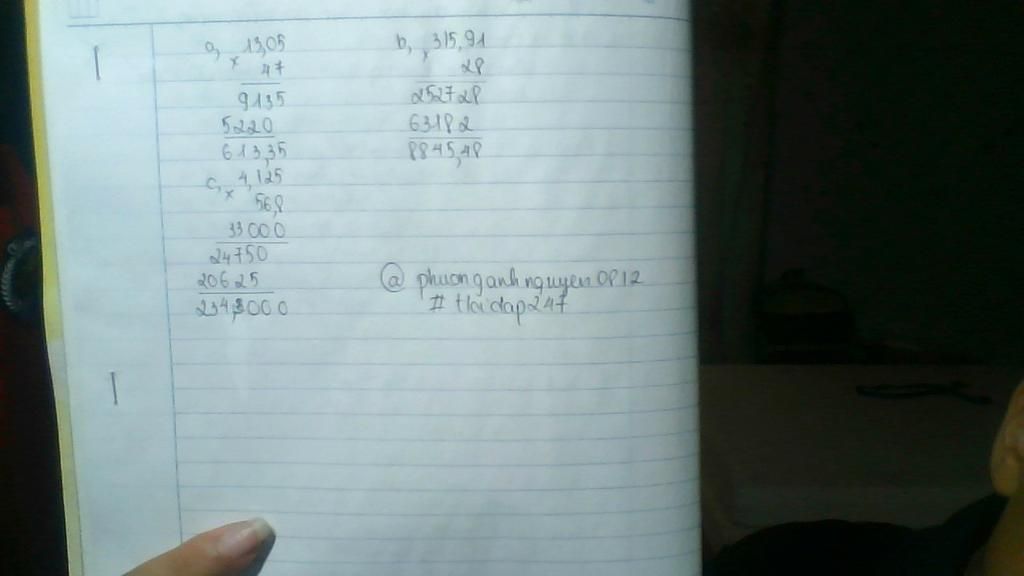 a, × 13,05
47
9135
5220
613,35
b, × 315,91
28
252728
63182
8845,48
c, × 4,125
56,8
33000
24750
20625
234,3000
@ phuonganhnguyen0812
# Hoidap247